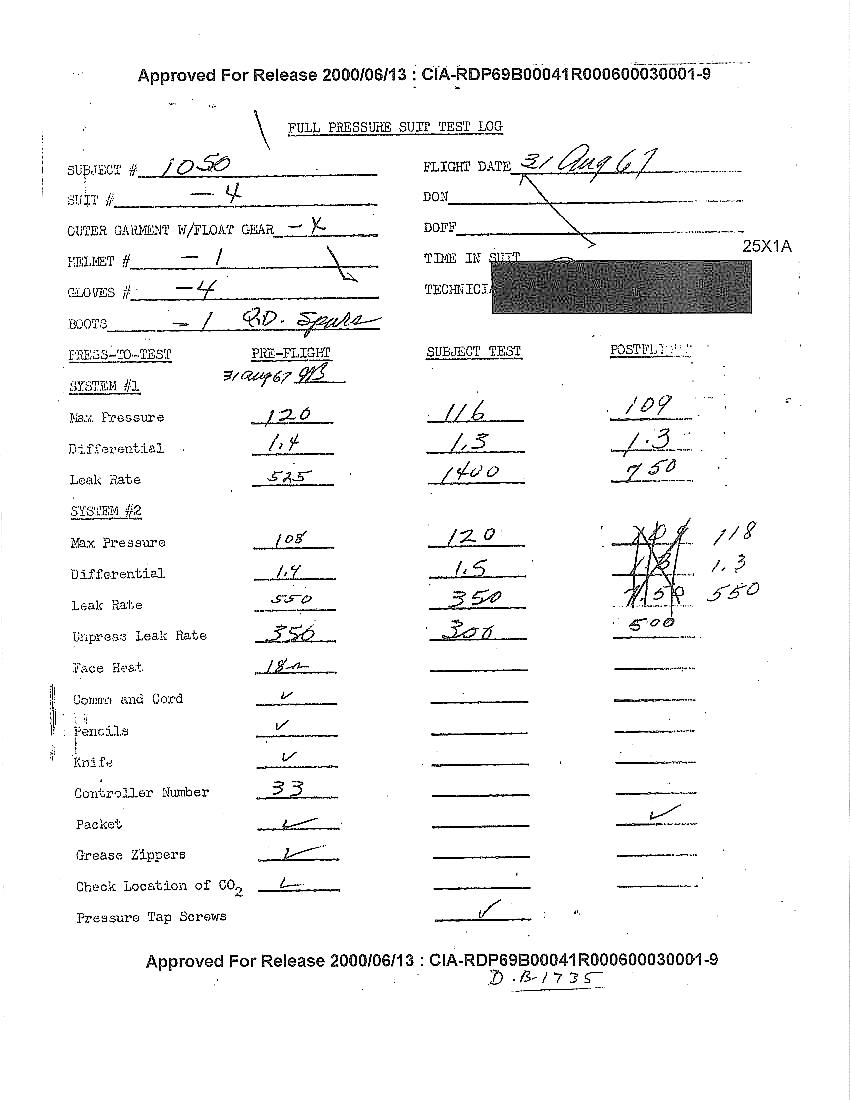 Approved For Release 2000/06/13 : CIA-RDP69B00041R000600030001-9
FULL PRESSURE SUIT TEST LOG
SUBJECT # 1050 FLIGHT DATE 31 Aug 67
SUIT # - 4 DON
OUTER GARMENT W/FLOAT GEAR - X DOFF
25X1A
HELMET # - 1 TIME IN SUIT
GLOVES # - 4 TECHNICI
BOOTS - 1 Q.D. Spurs
PRESS-TO-TEST PRE-FLIGHT SUBJECT TEST POSTFLI
SYSTEM #1 31 Aug 67
Max Pressure 120 116 109
Differential 1.4 1.3 1.3
Leak Rate 525 1400 750
SYSTEM #2
Max Pressure 108 120 109 118
Differential 1.4 1.5 1.3 1.3
Leak Rate 550 350 750 550
Unpress Leak Rate 350 300 500
Face Heat
Comm and Cord ✓
Pencils ✓
Knife ✓
Controller Number 33
Packet ✓ ✓
Grease Zippers ✓
Check Location of CO2 ✓
Pressure Tap Screws ✓
Approved For Release 2000/06/13 : CIA-RDP69B00041R000600030001-9
D-B-1735